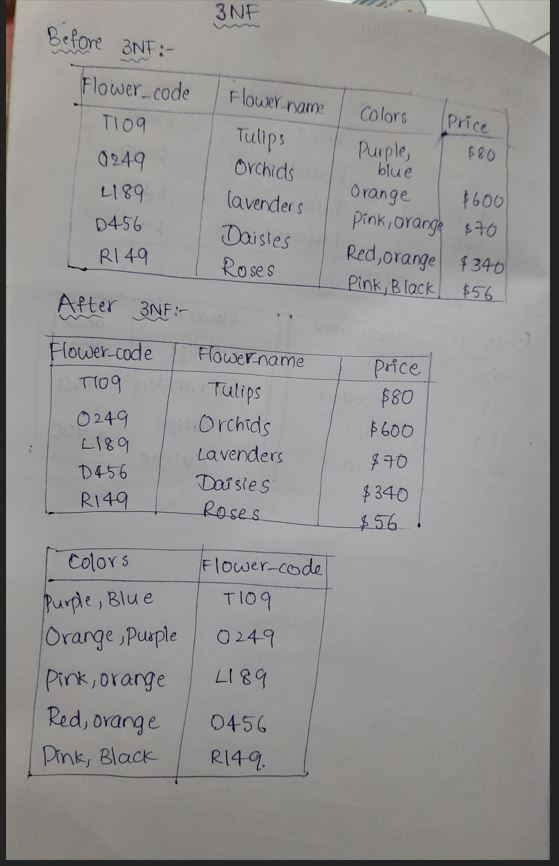 3NF
Before 3NF:-
Flower_code Flower_name Colors Price
T109 Tulips Purple, blue $80
O249 Orchids Orange $600
L189 lavenders Pink,orange $70
D456 Daisies Red,orange $340
R149 Roses Pink,Black $56
After 3NF:-
Flower-code Flower-name Price
T109 Tulips $80
O249 Orchids $600
L189 Lavenders $70
D456 Daisies $340
R149 Roses $56
Colors Flower-code
Purple, Blue T109
Orange,Purple O249
Pink,orange L189
Red,orange O456
Pink, Black R149.